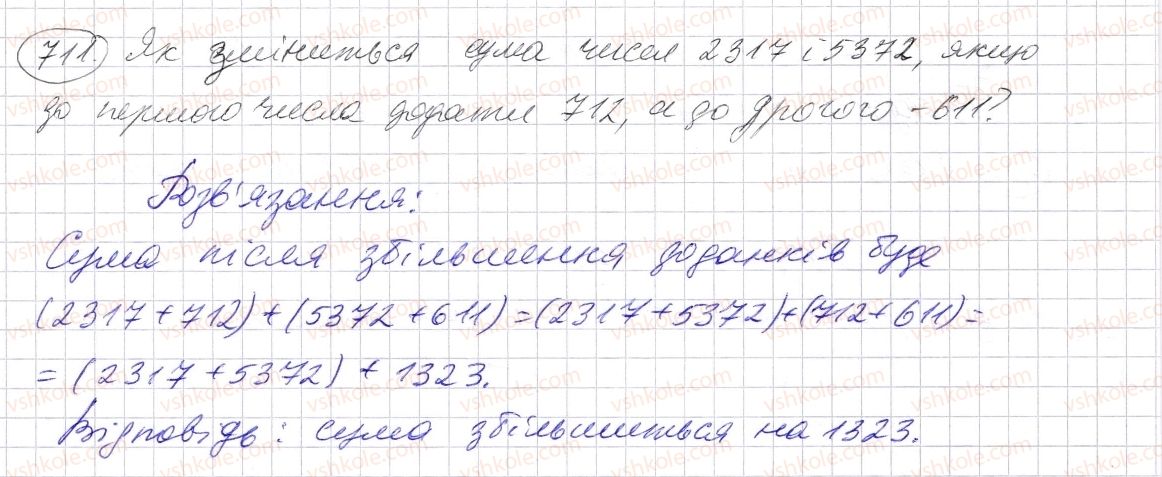 711. Як зміниться сума чисел 2317 і 5372, якщо
до першого числа додати 712, а до другого – 611?
Розв'язання:
Сума після збільшення доданків буде
(2317 + 712) + (5372 + 611) = (2317 + 5372) + (712 + 611) =
= (2317 + 5372) + 1323.
Відповідь: сума збільшиться на 1323.